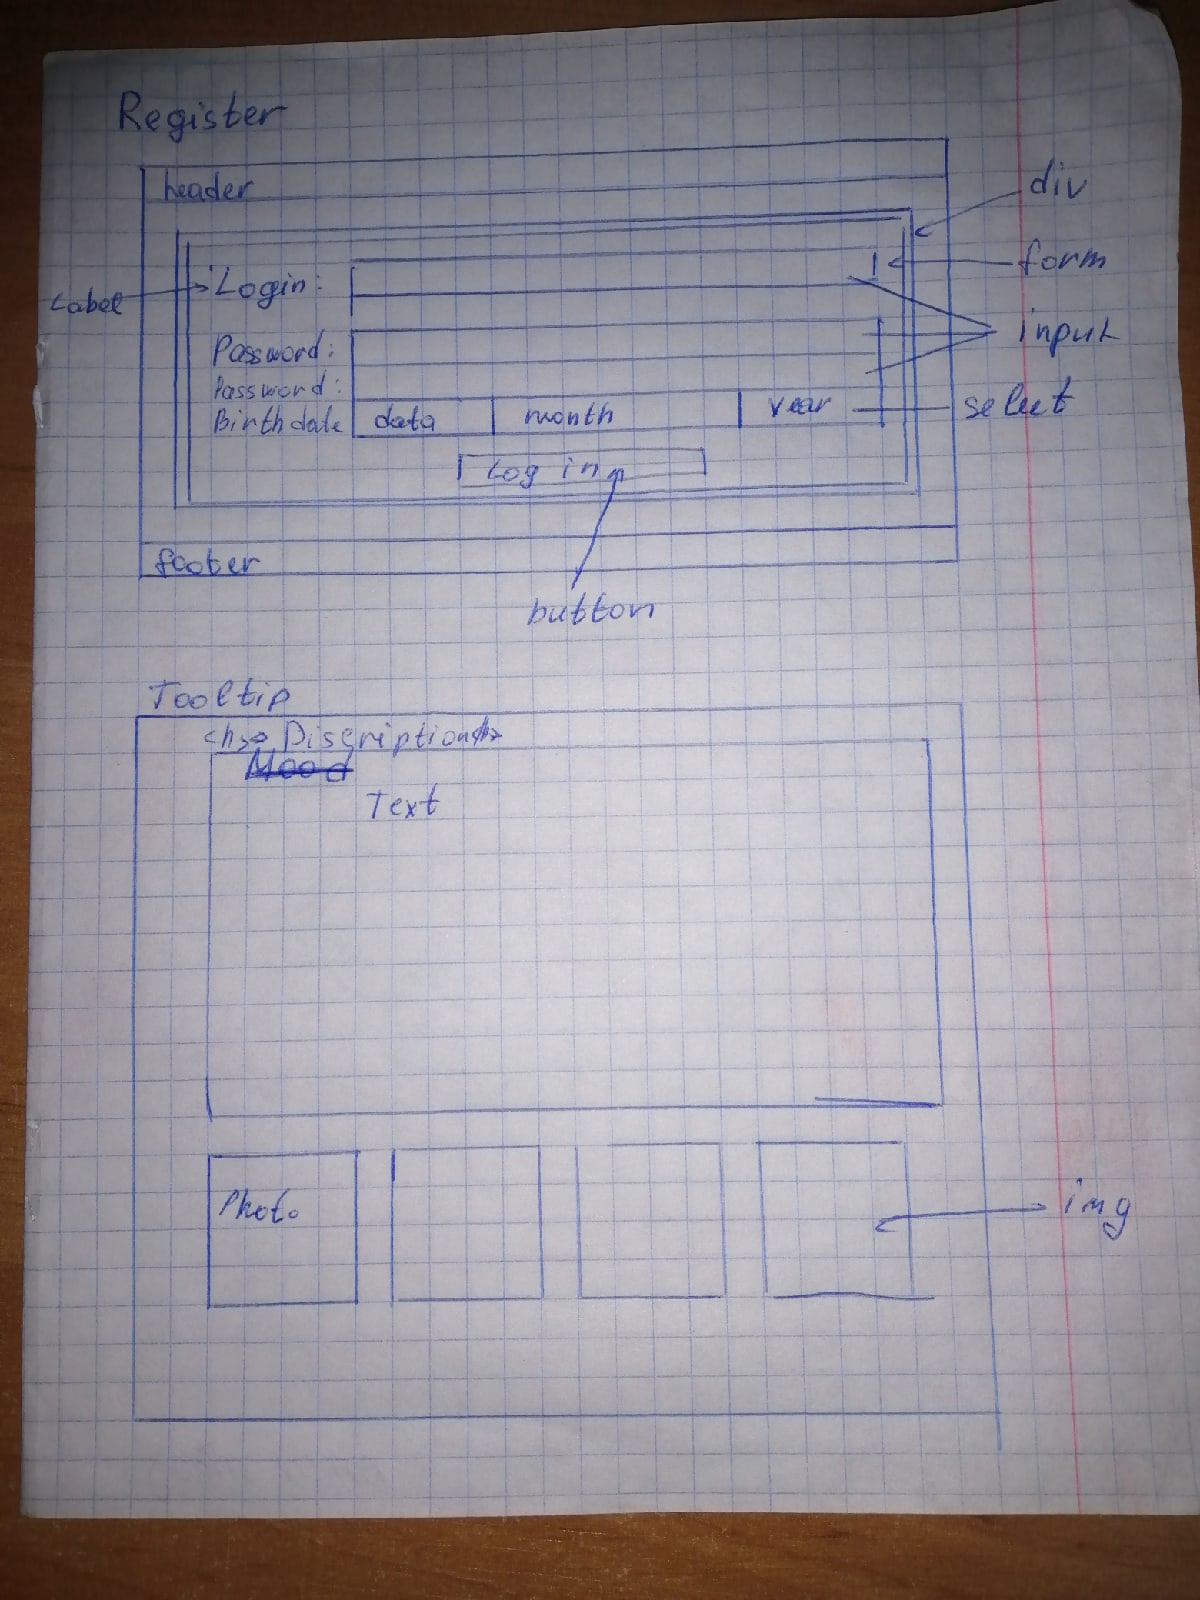 Register
header
div
Login:
form
Label
input
Password:
Password:
Birthdate data month year
select
Log in
footer
button
Tooltip
<h3> Discription</h>
Mood
Text
Photo
img